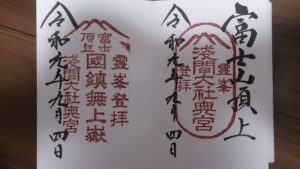 富士山頂上
靈峯
登拝
淺間大社奥宮
令和元年九月四日
靈峯登拝
富士
頂上
國鎮無上嶽
淺間大社奥宮
令和元年九月四日